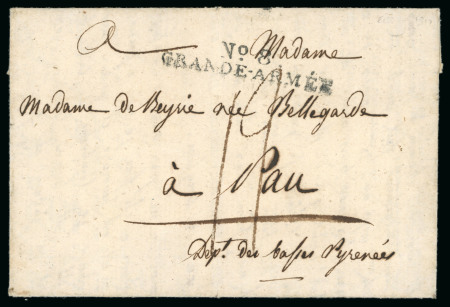 A Madame
No. 8
GRANDE-ARMÉE
Madame de Beyrie née Bellegarde
à Pau
Dept. des basses Pyrenées